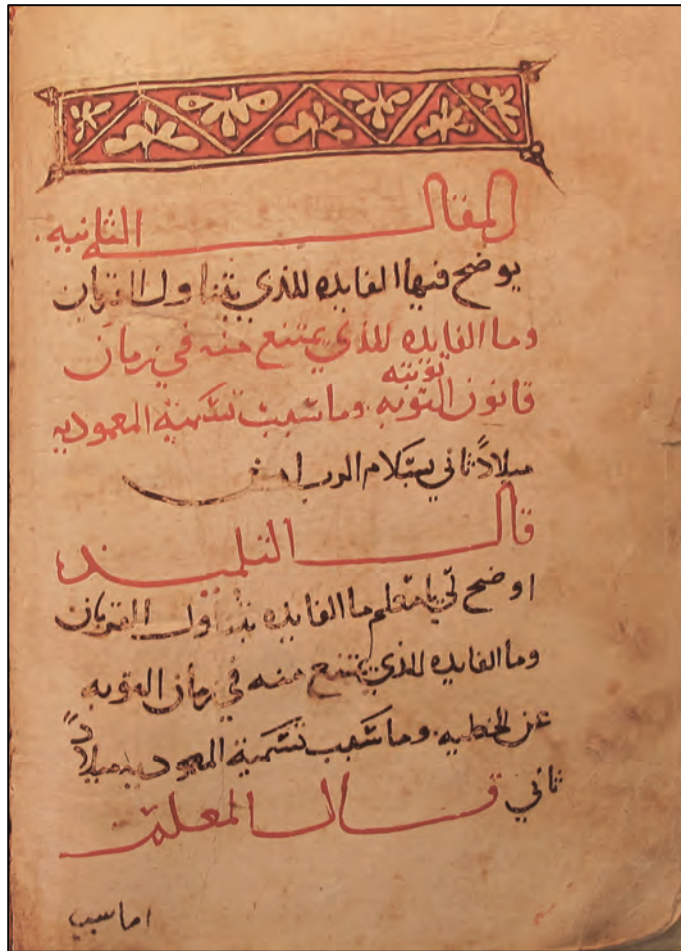 المقاله الثانيه
يوضح فيها الفايده للذي يتناول القربان
وما الفايده للذي يمتنع منه في زمان
توبته
قانون التوبه. وما سبب تسمية المعموديه
ميلاداً ثاني بسلام الرب امين
قال التلميد
اوضح لي يا معلم ما الفايده بتناول القربان
وما الفايده للذي يمتنع منه في زمان التوبه
عن الخطيه. وما سبب تسمية المعموديه ميلاداً
ثاني قال المعلم
اما سبب